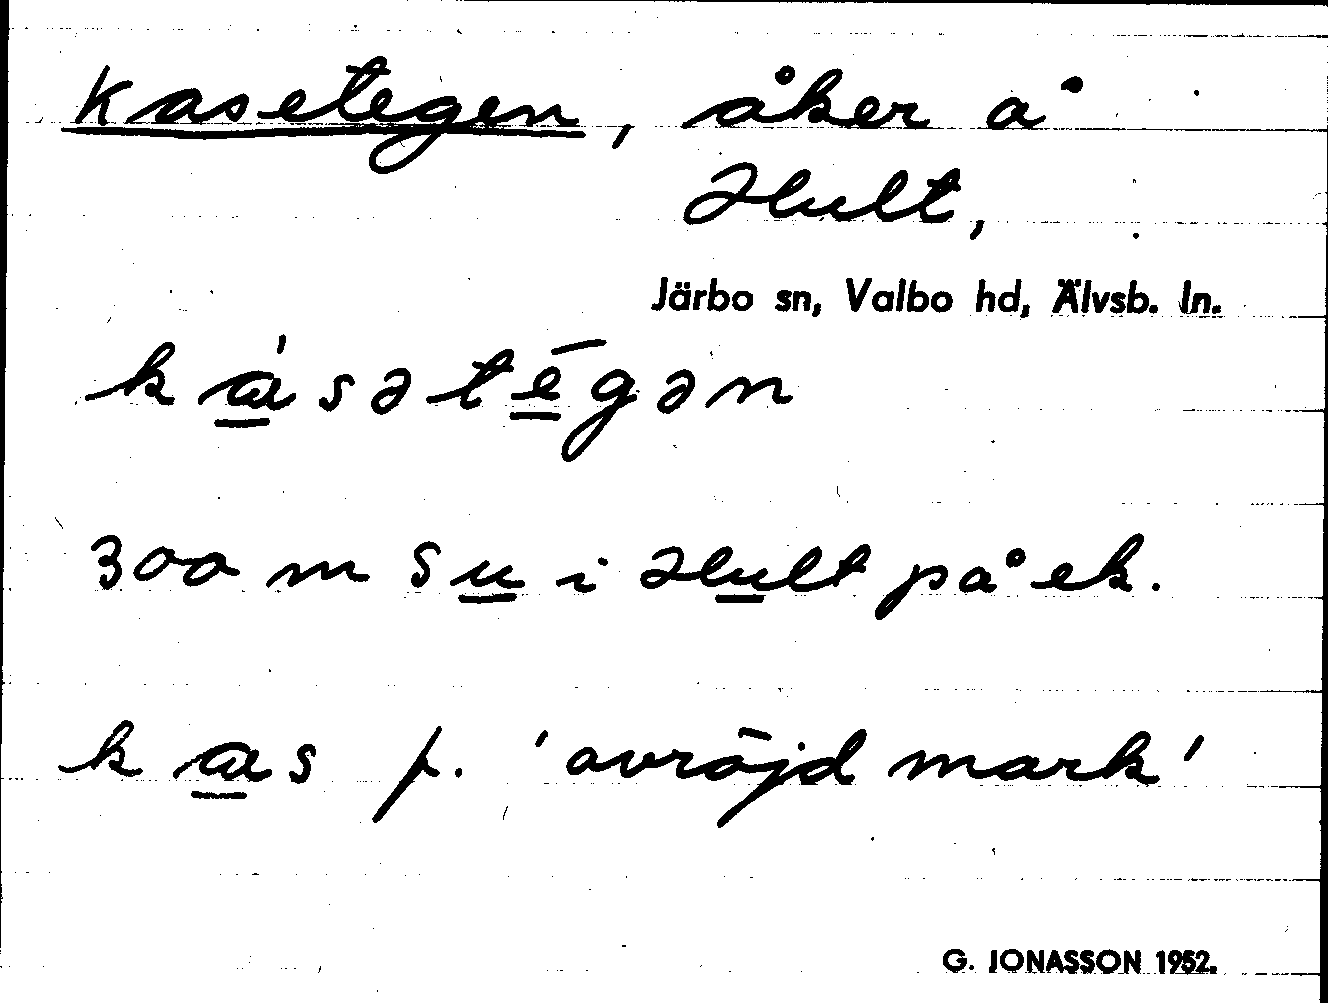 Kasetegen, åker å
Hult,
Järbo sn, Valbo hd, Älvsb. ln.
kàsətēgən
300 m S u i Hult på ek.
kas f. 'avröjd mark'
G. JONASSON 1952.